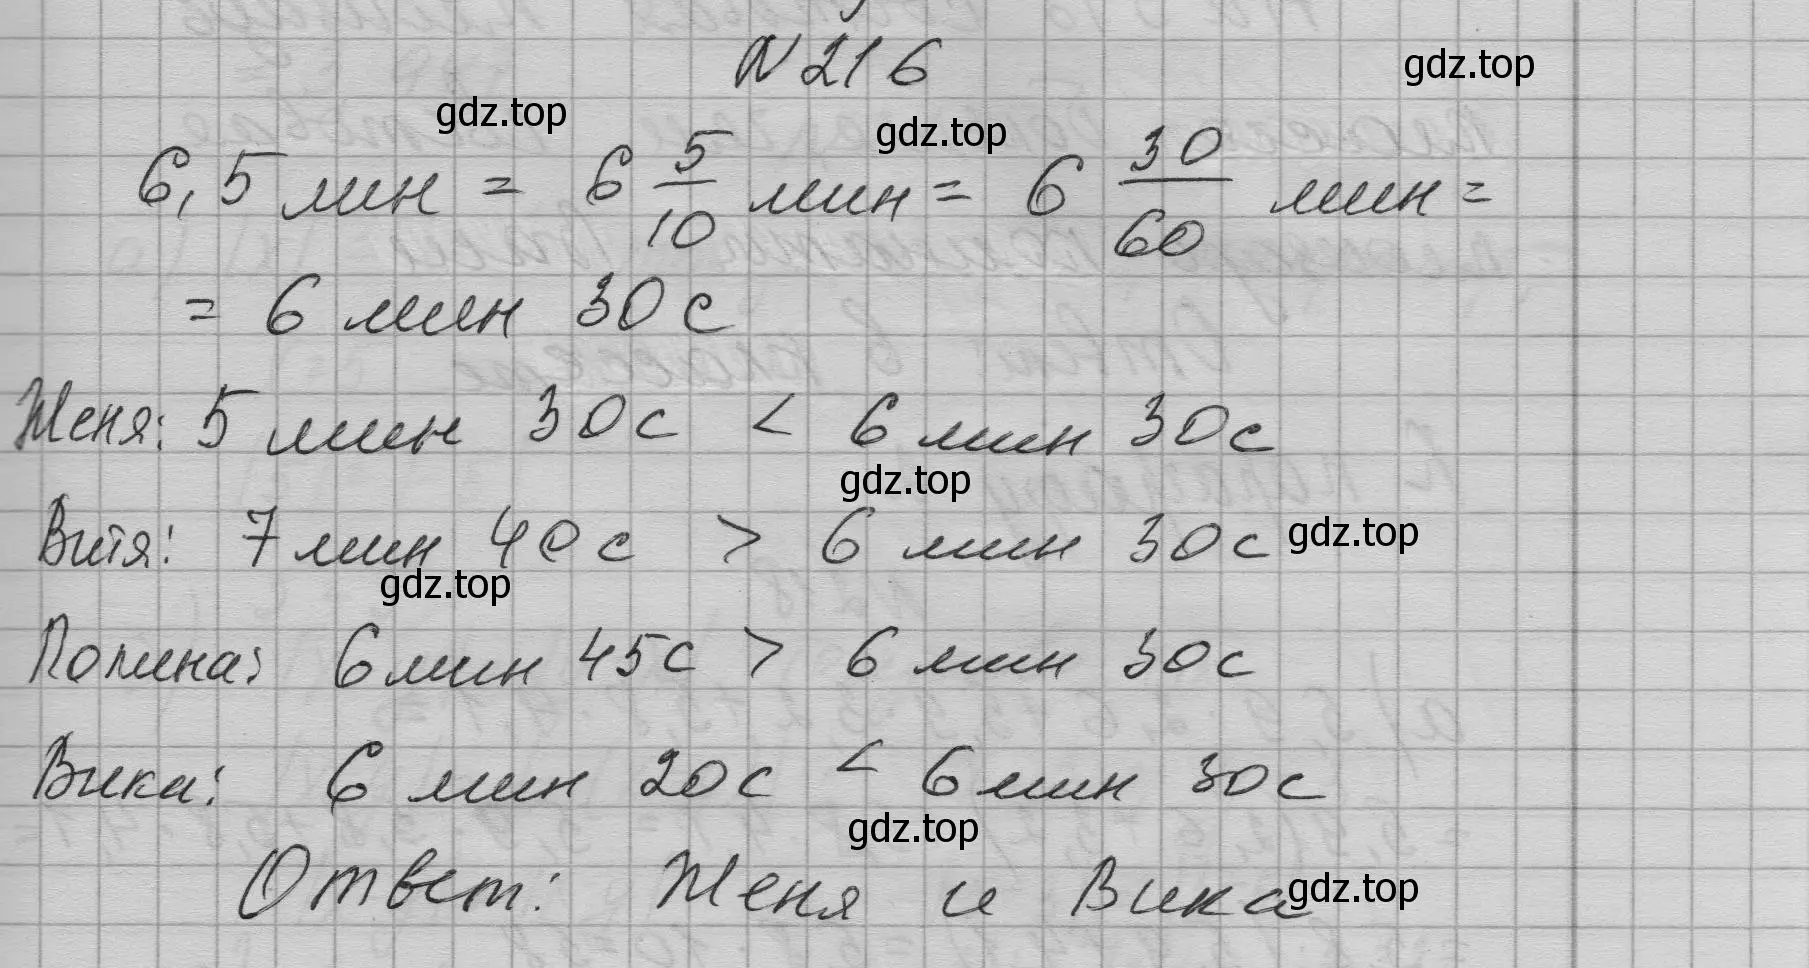 № 216
gdz.top
gdz.top
gdz.top
6,5 мин = 6 5/10 мин = 6 30/60 мин =
= 6 мин 30 с
Женя: 5 мин 30 с < 6 мин 30 с
gdz.top
Витя: 7 мин 40 с > 6 мин 30 с
gdz.top
gdz.top
Полина: 6 мин 45 с > 6 мин 30 с
Вика: 6 мин 20 с < 6 мин 30 с
gdz.top
Ответ: Женя и Вика
gdz.top